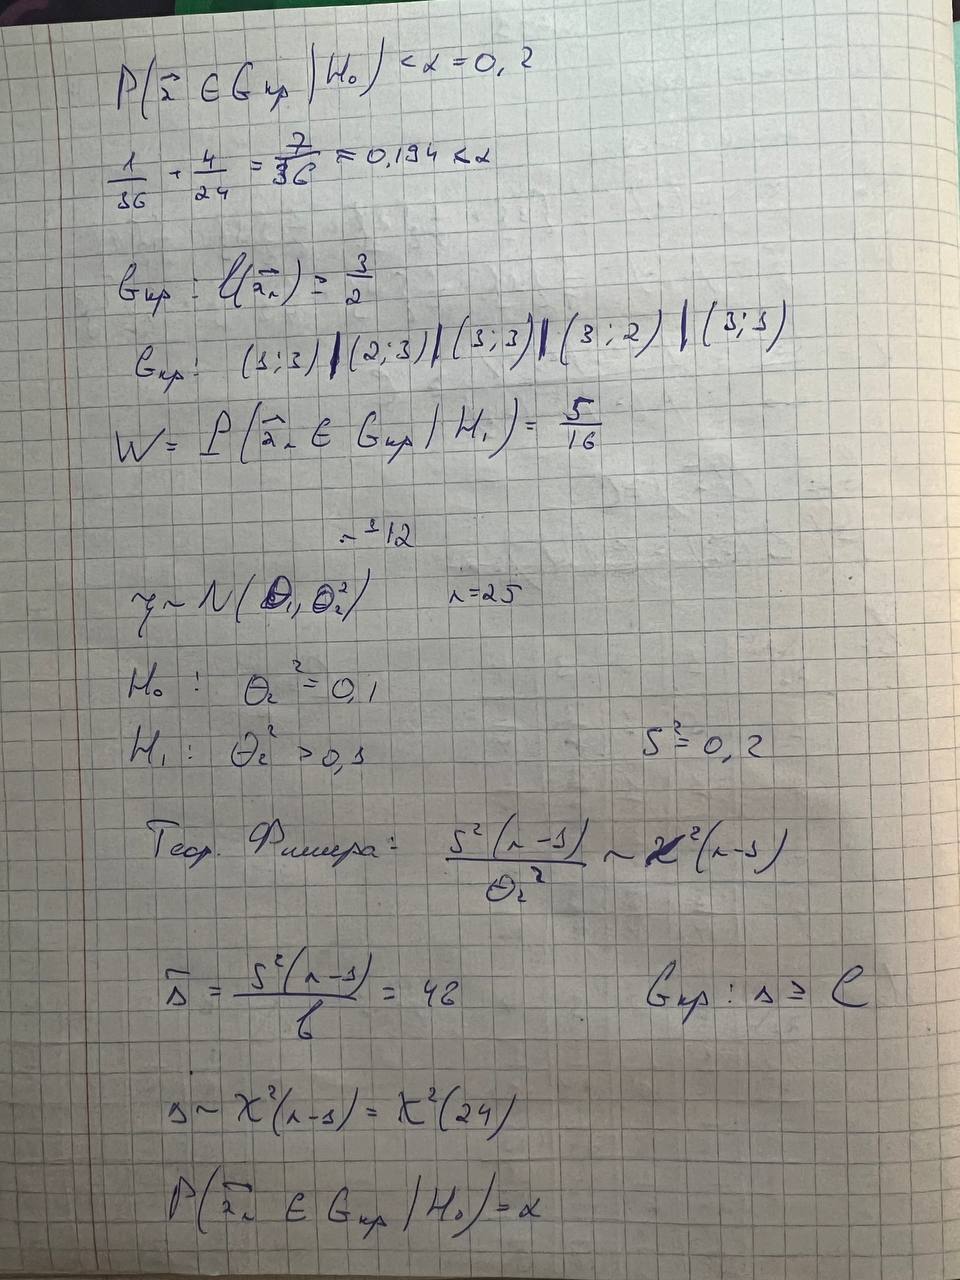 P(x⃗ ∈ Gкр | H₀) < α = 0,2
1/36 + 4/24 = 7/36 = 0,194 < α
Gкр : l(x⃗ₙ) ≥ 3/2
Gкр: (1;3) | (2;3) | (3;3) | (3;2) | (3;1)
W = P(x⃗ₙ ∈ Gкр | H₁) = 5/16
~ 12
η ~ N(θ₁, θ₂²) n=25
H₀ : θ₂² = 0,1
H₁ : θ₂² > 0,1 S² = 0,2
Теор. Фишера: S²(n-1)/θ₂² ~ χ²(n-1)
s̃ = S²(n-1)/b = 48 Gкр : s ≥ C
s ~ χ²(n-1) = χ²(24)
P(x⃗ₙ ∈ Gкр | H₀) = α